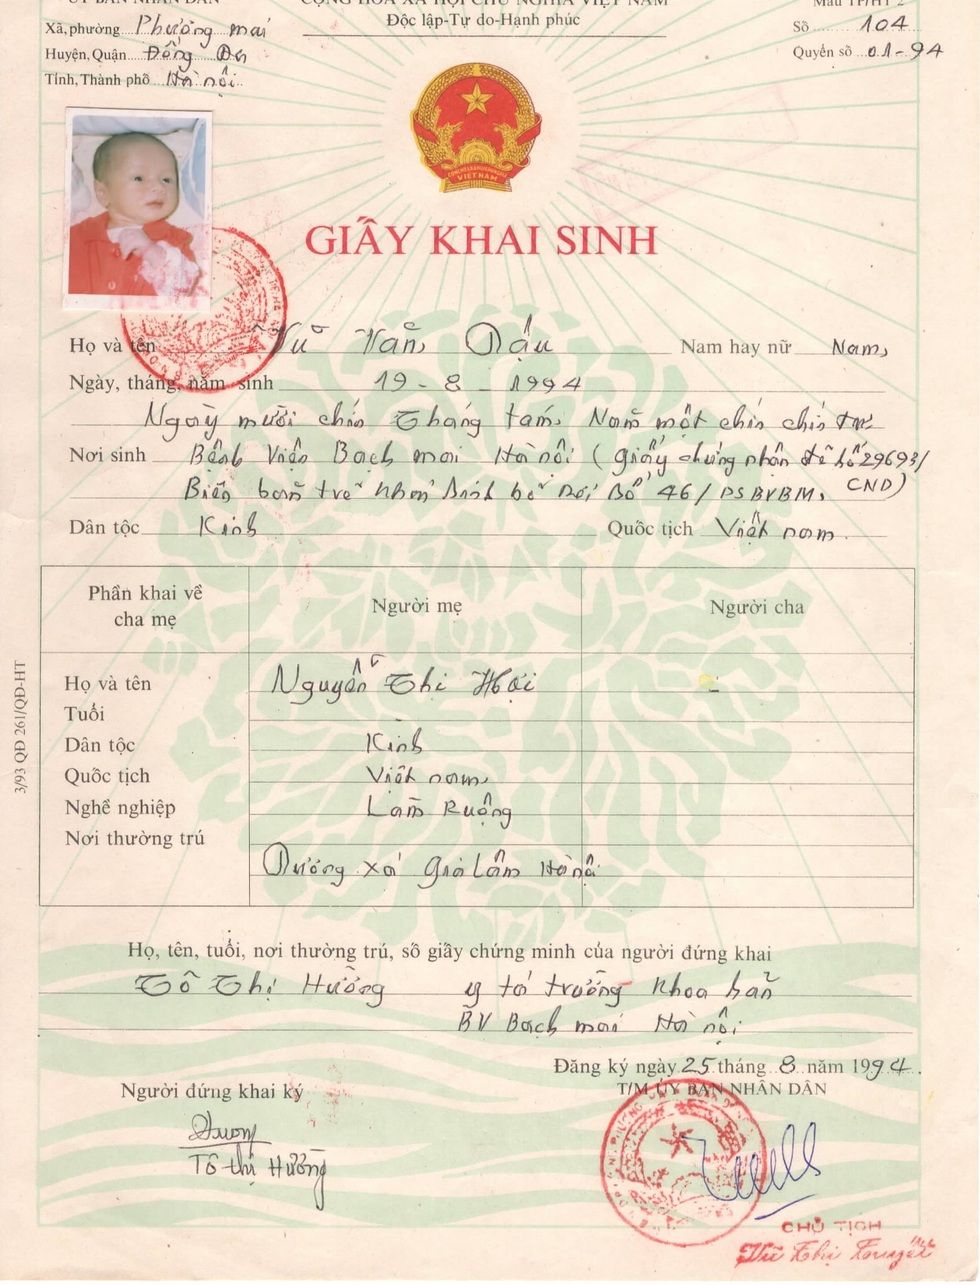 ỦY BAN NHÂN DÂN
CỘNG HÒA XÃ HỘI CHỦ NGHĨA VIỆT NAM
Mẫu TP/HT 2
Xã, phường Phương mai
Độc lập-Tự do-Hạnh phúc
Số 104
Huyện, Quận Đống Đa
Quyển số 01-94
Tỉnh, Thành phố Hà nội
VIỆT NAM
GIẤY KHAI SINH
Họ và tên Vũ Văn Dậu Nam hay nữ Nam
Ngày, tháng, năm sinh 19-8-1994
Ngày mười chín Tháng tám Năm một chín chín tư
Nơi sinh Bệnh Viện Bạch mai Hà nội (Giấy chứng nhận đẻ số 29693/
Biên bản trẻ sinh bỏ rơi Số 46/PSBVBM, CND)
Dân tộc Kinh Quốc tịch Việt nam
Phần khai về cha mẹ
Người mẹ
Người cha
Họ và tên Nguyễn Thị Hợi
Tuổi
Dân tộc Kinh
Quốc tịch Việt nam
Nghề nghiệp Làm Ruộng
Nơi thường trú
Dương xá Gia Lâm Hà nội
3/93 QĐ 261/QĐ-HT
Họ, tên, tuổi, nơi thường trú, số giấy chứng minh của người đứng khai
Tô Thị Hường y tá trưởng Khoa sản
BV Bạch mai Hà nội
Đăng ký ngày 25 tháng 8 năm 1994
Người đứng khai ký
T/M ỦY BAN NHÂN DÂN
Tô thị Hường
CHỦ TỊCH
Vũ Thị Tuyết